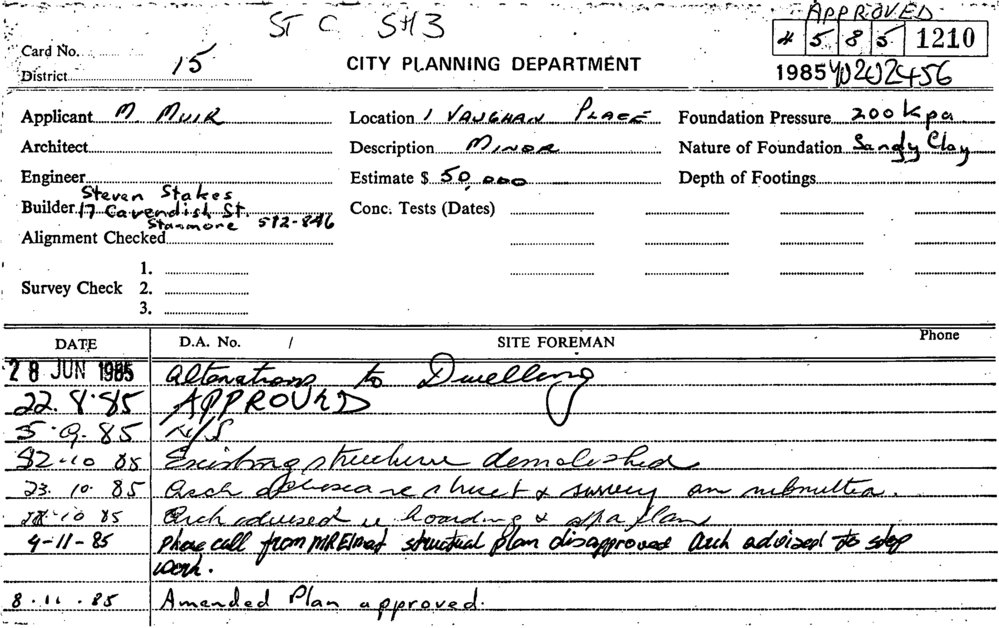 ST C SH3
APPROVED
4 5 8 5 1210
Card No.
District 15
CITY PLANNING DEPARTMENT
1985 40202456
Applicant M. MUIR
Location 1 VAUGHAN PLACE
Foundation Pressure 200 Kpa
Architect
Description MINOR
Nature of Foundation Sandy Clay
Engineer
Estimate $ 50,000
Depth of Footings
Steven Stakes
Builder 17 Cavendish St.
Conc. Tests (Dates)
Stanmore 512-846
Alignment Checked
1.
Survey Check 2.
3.
DATE D.A. No. / SITE FOREMAN Phone
28 JUN 1985 Alterations to Dwelling
22.8.85 APPROVED
5.9.85 N/S
10 85 Existing structure demolished
23.10.85 Arch re struct & survey submitted.
10 85 Arch advised re hoarding & spa plan
4-11-85 Phone call from MR structural plan disapproved Arch advised to stop
work.
8.11.85 Amended Plan approved.